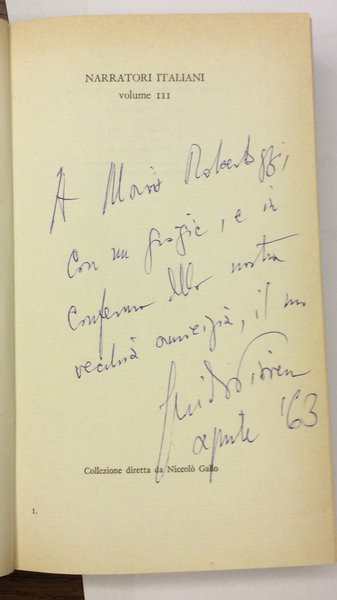 NARRATORI ITALIANI
volume III
A Mario Robertazzi,
con un grazie, e in
conferma della nostra
vecchia amicizia, il suo
Guido Piovene
aprile '63
Collezione diretta da Niccolò Gallo
1.